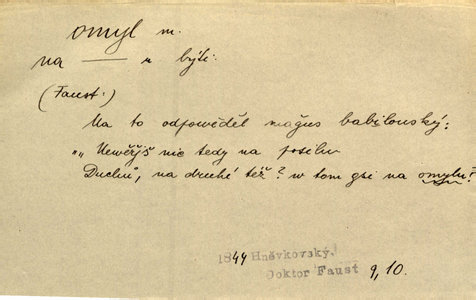 omyl m.
na — u býti:
(Faust.)
Na to odpověděl magus babilonský:
„Newěřjš nic tedy na posilu
Duchů, na druhé též? w tom gsi na omylu!
1844 Hněvkovský,
Doktor Faust 9, 10.